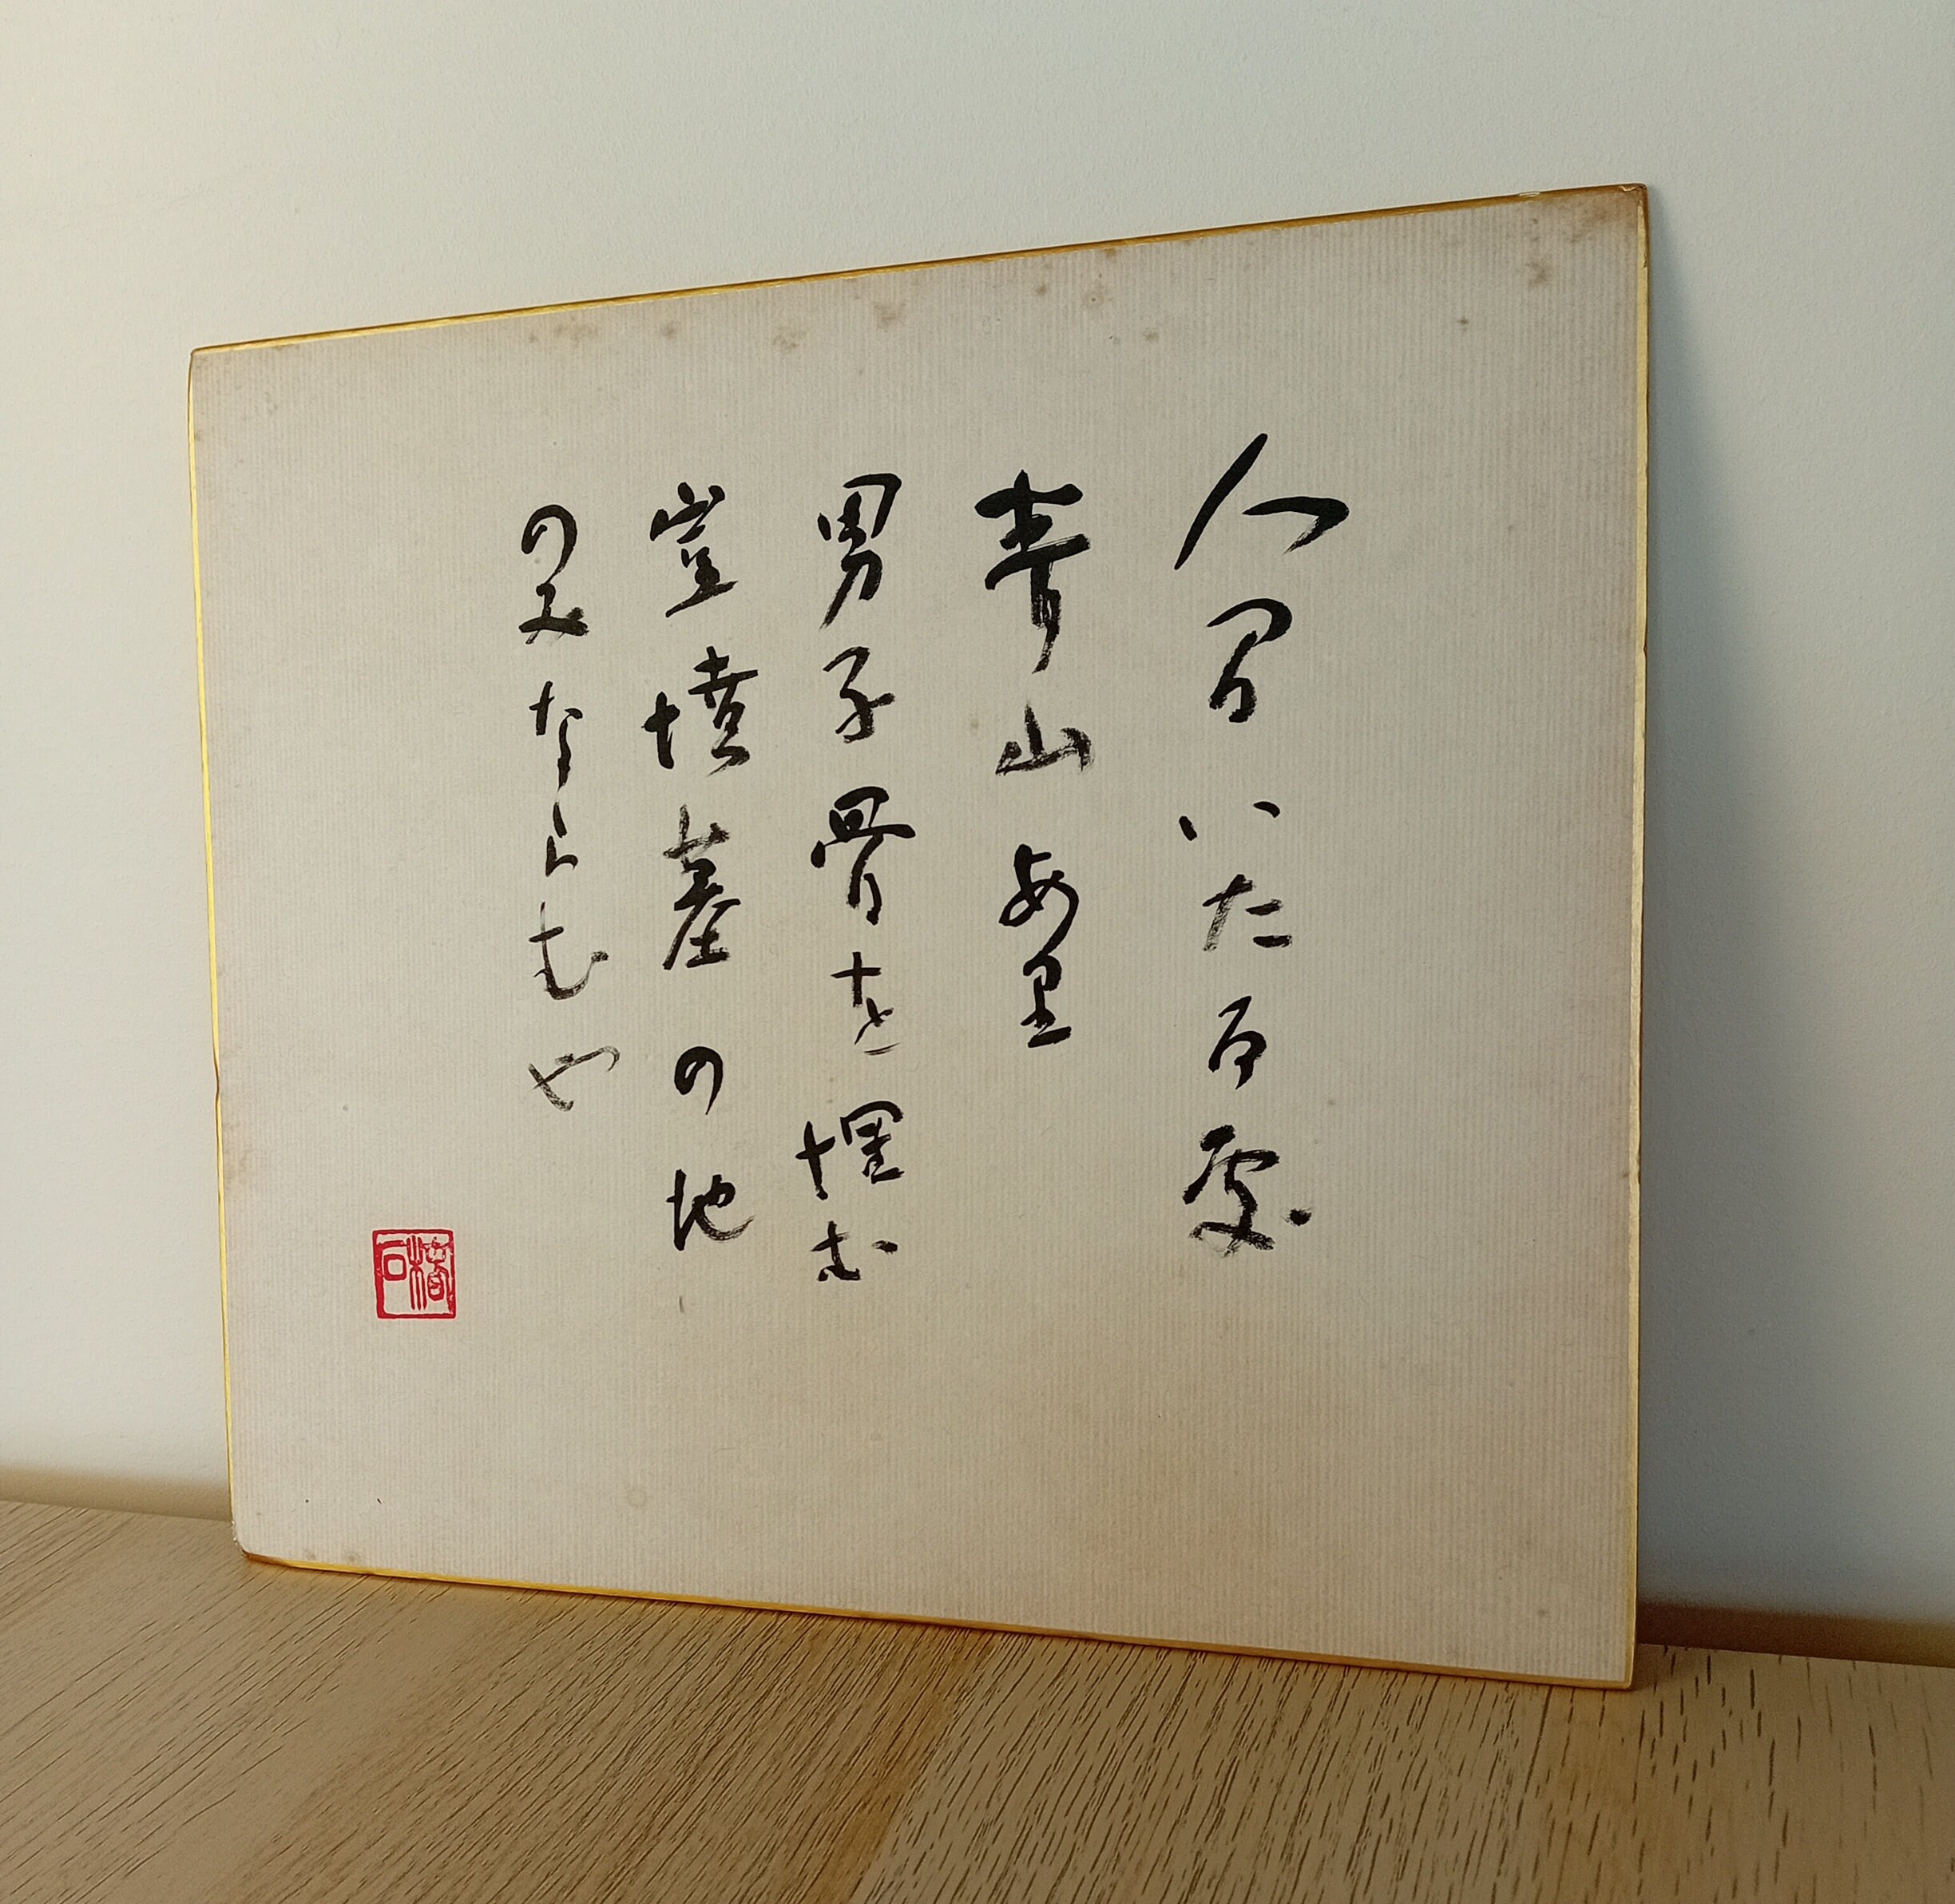 人間いたる処
青山あり
男子骨を埋む
豈墳墓の地
のみならむや